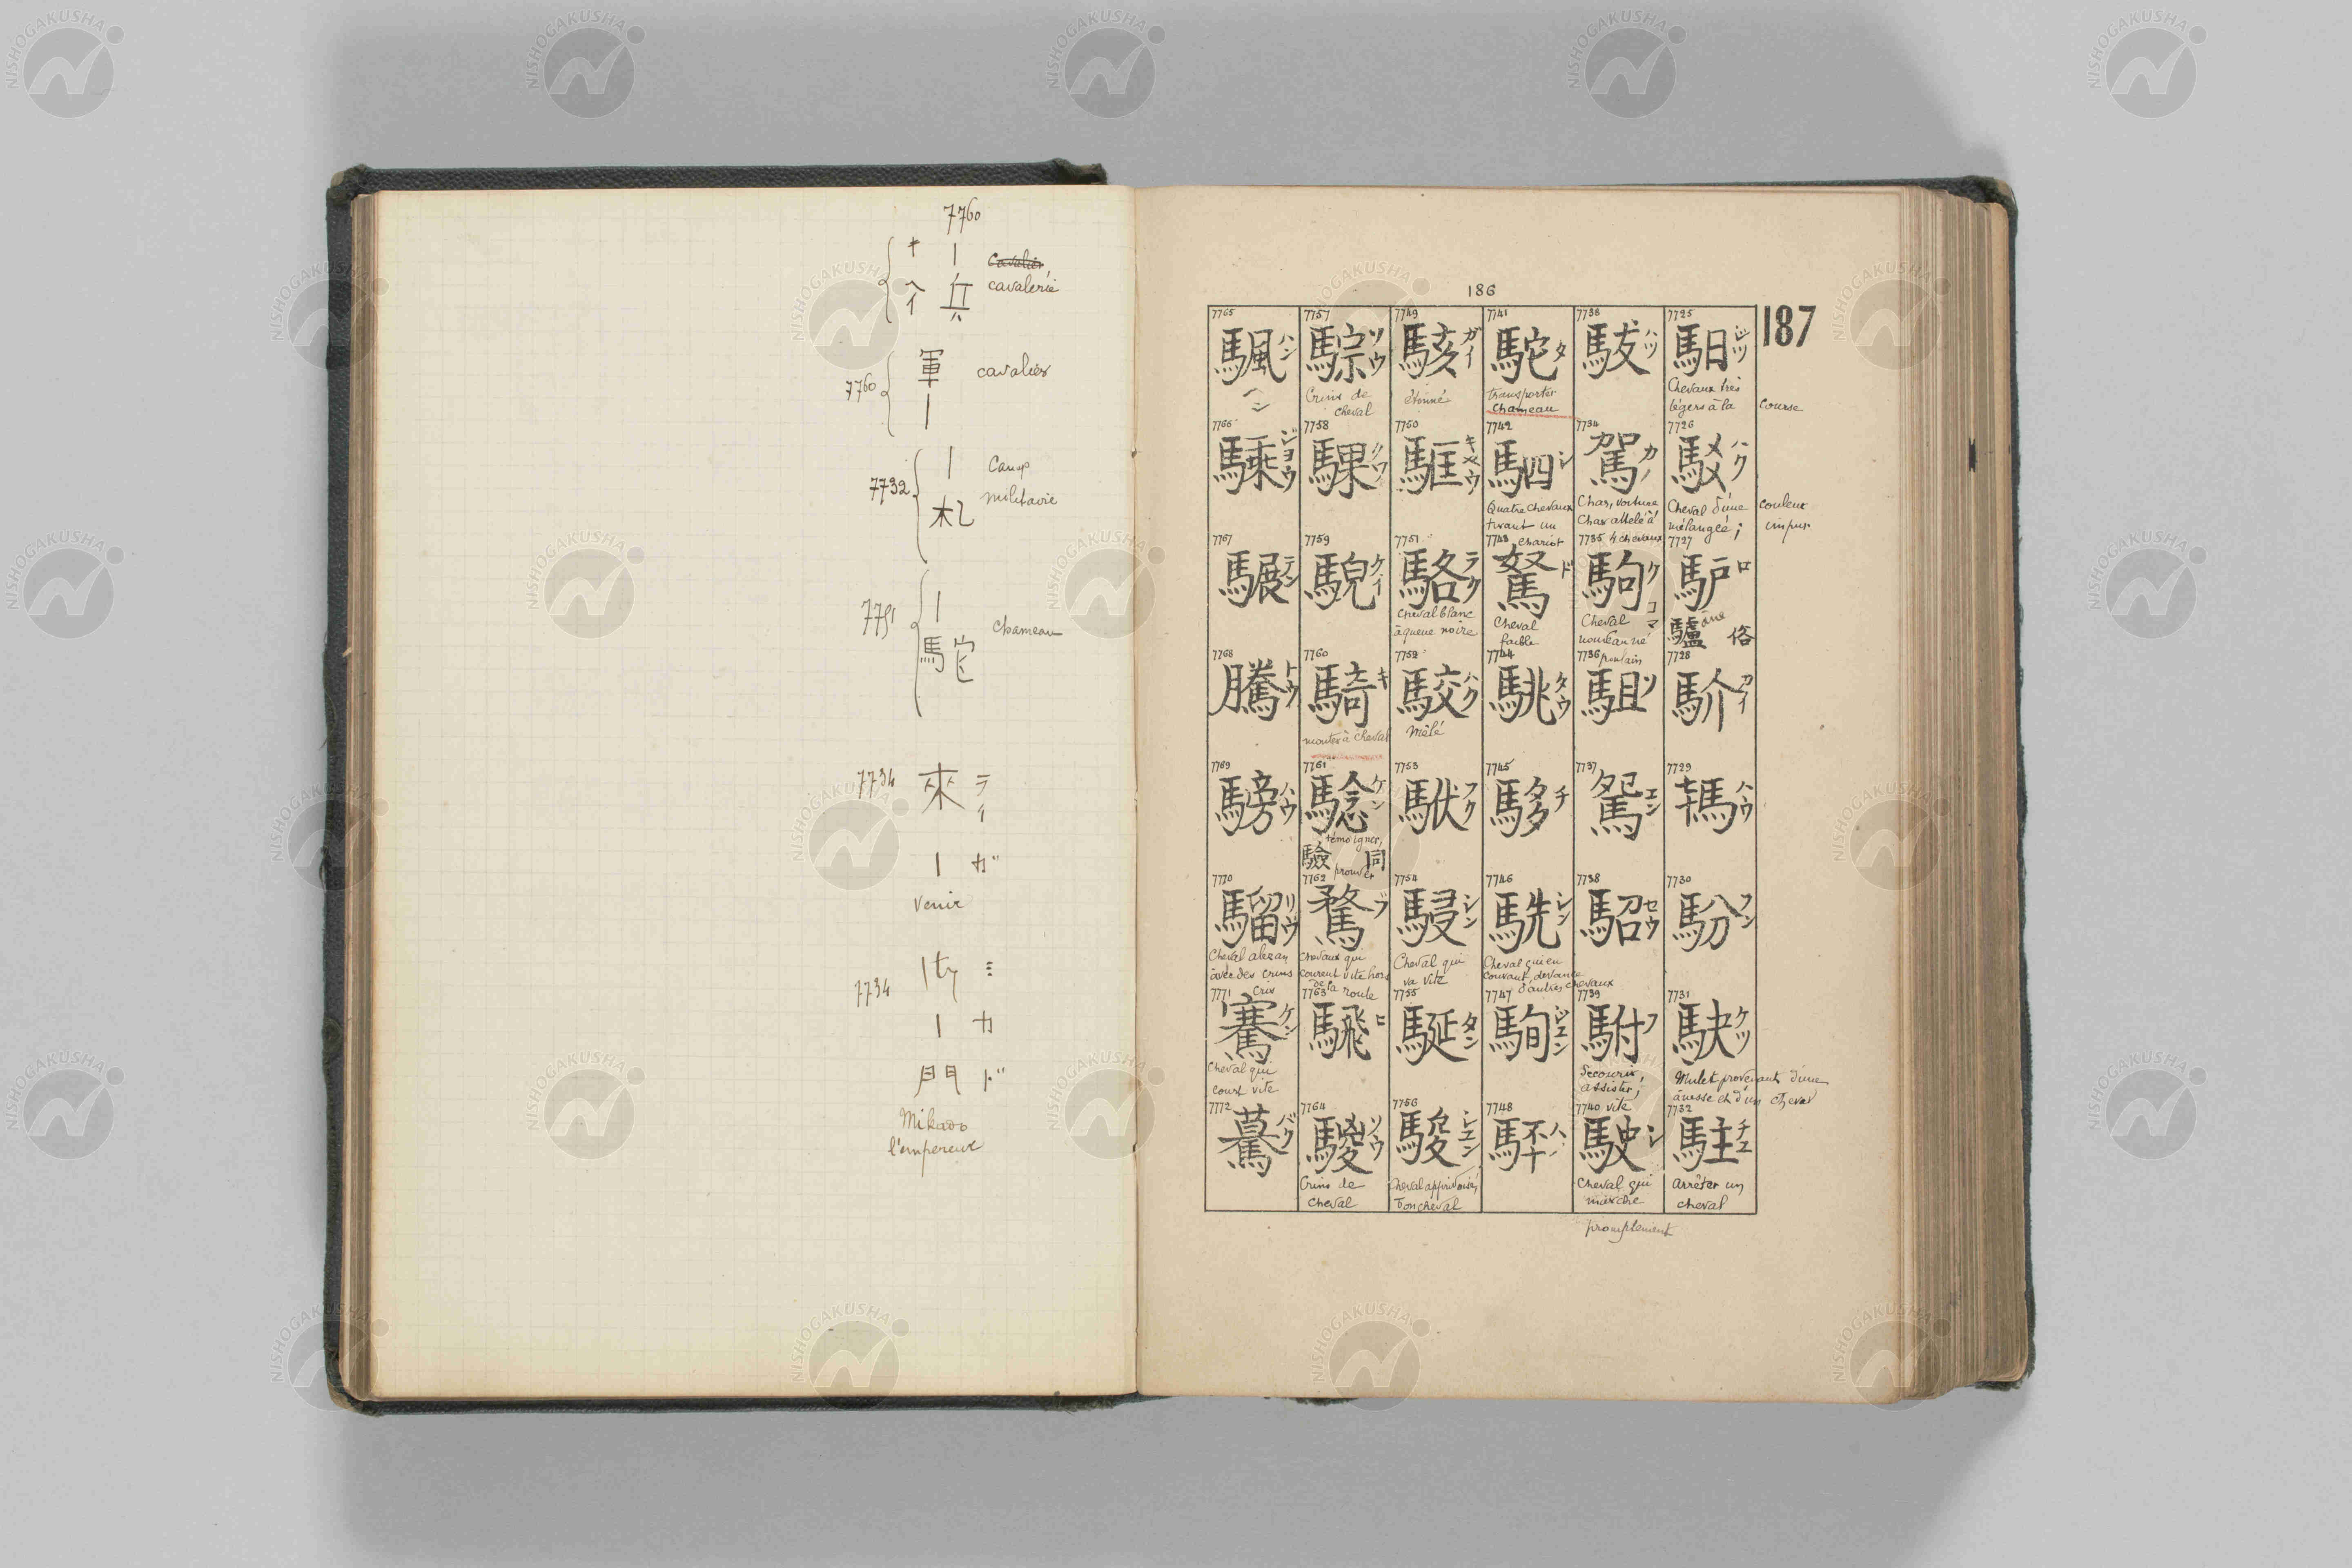 7760
キ 丨 Cavalier
ヘイ 兵 cavalerie
7760 軍 丨 cavalier
7732 丨 札 Camp
militaire
7751 丨 馬它 chameau
7734 來 ライ
丨 ガ
venir
7734 ミ
丨 カ
門 ド
Mikado
l'empereur
186
187
7725 馹 ジツ
Chevaux très
légers à la course
7726 駁 ハク
Cheval d'une couleur
mélangée; impur
7727 馿 ロ
âne
驢 俗
7728 馻 カイ
7729 ハウ
7730 馚 フン
7731 駃 ケツ
Mulet provenant d'une
ânesse et d'un cheval
7732 駐 チユ
Arrêter un
cheval
7733 ハツ
7734 駕 カ
Char, voiture
Char attelé à
4 chevaux
7735 駒 ク
コマ
Cheval
nouveau né
poulain
7736 駔 ソ
7737 駕 エン
7738 駋 セウ
7739 駙 フ
Secourir,
assister,
vite
7740 駛 シ
Cheval qui
marche
promptement
7741 駝 タ
transporter
chameau
7742 駟 シ
Quatre chevaux
tirant un
chariot
7743 駑 ド
Cheval
faible
7744 駣 タウ
7745 チ
7746 駪 シン
Cheval qui en
courant devance
d'autres chevaux
7747 駨 ジユン
7748
7749 駭 ガイ
étonné
7750 駏 キヤウ
7751 駱 ラク
cheval blanc
à queue noire
7752 駮 ハク
Mêlé
7753 フク
7754 駸 シン
Cheval qui
va vite
7755 タン
7756 駿 シユン
Cheval apprivoisé,
bon cheval
7757 騌 ソウ
Crins de
cheval
7758 騍 クワ
7759 ゲイ
7760 騎 キ
monter à cheval
7761 騐 ケン
témoigner,
prouver
驗 同
7762 騖 ブ
Chevaux qui
courent vite hors
de la route
7763 騛 ヒ
7764 騣 ソウ
Crins de
cheval
7765 ハン
7766 騬 ジヨウ
7767 テン
7768 騰 トウ
7769 騯 ハウ
7770 騮 リウ
Cheval alezan
avec des crins
7771 騫 ケン
Cheval qui
court vite
7772 驀 バク
NISHOGAKUSHA